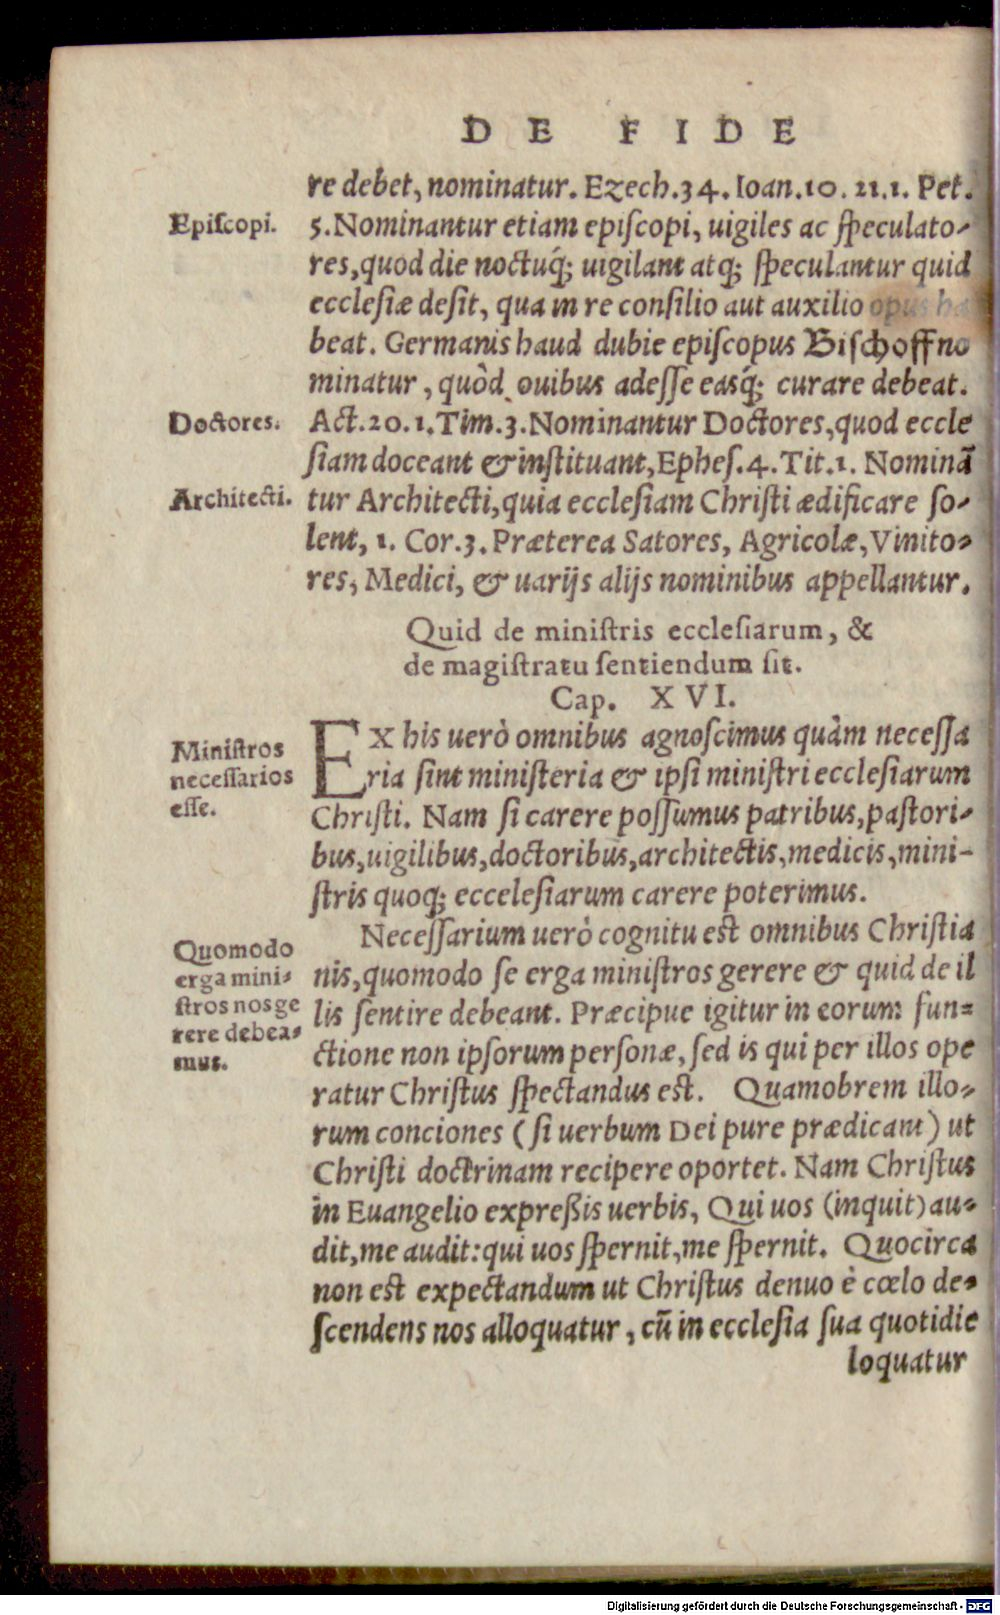 DE FIDE
re debet, nominatur. Ezech.34. Ioan.10. 21.1. Pet.
Epiſcopi.
5. Nominantur etiam epiſcopi, uigiles ac ſpeculato-
res, quod die noctuq́; uigilant atq; ſpeculantur quid
eccleſiæ deſit, qua in re conſilio aut auxilio opus ha
beat. Germanis haud dubie epiſcopus Biſchoff no
minatur, quòd ouibus adeſſe easq́; curare debeat.
Doctores.
Act.20. 1. Tim.3. Nominantur Doctores, quod eccle
ſiam doceant & inſtituant, Epheſ.4. Tit.1. Nominā
Architecti.
tur Architecti, quia eccleſiam Chriſti ædificare ſo-
lent, 1. Cor.3. Præterea Satores, Agricolæ, Vinito-
res, Medici, & uarijs alijs nominibus appellantur.
Quid de miniſtris eccleſiarum, &
de magiſtratu ſentiendum ſit.
Cap. XVI.
Miniſtros
neceſſarios
eſſe.
EX his uerò omnibus agnoſcimus quàm neceſſa
ria ſint miniſteria & ipſi miniſtri eccleſiarum
Chriſti. Nam ſi carere poſſumus patribus, paſtori-
bus, uigilibus, doctoribus, architectis, medicis, mini-
ſtris quoq; ecceleſiarum carere poterimus.
Quomodo
erga mini-
ſtros nos ge
rere debea-
mus.
Neceſſarium uerò cognitu eſt omnibus Chriſtia
nis, quomodo ſe erga miniſtros gerere & quid de il
lis ſentire debeant. Præcipue igitur in eorum fun-
ctione non ipſorum perſonæ, ſed is qui per illos ope
ratur Chriſtus ſpectandus eſt. Quamobrem illo-
rum conciones (ſi uerbum Dei pure prædicant) ut
Chriſti doctrinam recipere oportet. Nam Chriſtus
in Euangelio expreßis uerbis, Qui uos (inquit) au-
dit, me audit: qui uos ſpernit, me ſpernit. Quocirca
non eſt expectandum ut Chriſtus denuo è cœlo de-
ſcendens nos alloquatur, cū in eccleſia ſua quotidie
loquatur
Digitalisierung gefördert durch die Deutsche Forschungsgemeinschaft - DFG